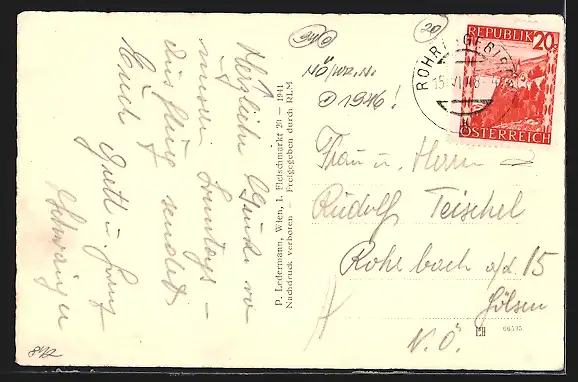 Herzliche Grüße v.
unserer Sonntags-
ausflug sendet
Euch Gretl u. Franz
Schwaiger
P. Ledermann, Wien, I. Fleischmarkt 20 – 1941
Nachdruck verboten – Freigegeben durch RLM
20
NÖ/WR.N.
1946!
ROHR I. GEBIRGE
REPUBLIK 20
ÖSTERREICH
Frau u. Herrn
Rudolf Teischel
Rohrbach a/d. 15
Gölsen
N.Ö.
06595
842